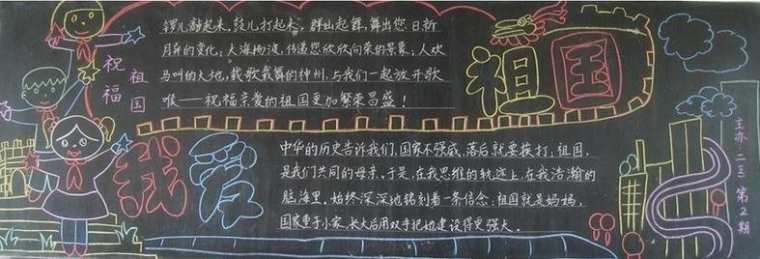 祝福
祖国
锣儿敲起来,鼓儿打起来,群山起舞,舞出您日新
月异的变化;大海扬波,传递您欣欣向荣的景象;人欢
马叫的大地,载歌载舞的神州,与我们一起放开歌
喉——祝福亲爱的祖国更加繁荣昌盛!
祖国
我爱
中华的历史告诉我们,国家不强盛,落后就要挨打,祖国,
是我们共同的母亲,于是,在我思维的轨迹上,在我浩瀚的
脑海里,始终深深地铭刻着一条信念:祖国就是妈妈,
国家重于小家,长大后用双手把她建设得更强大。
主办 二三 第2期